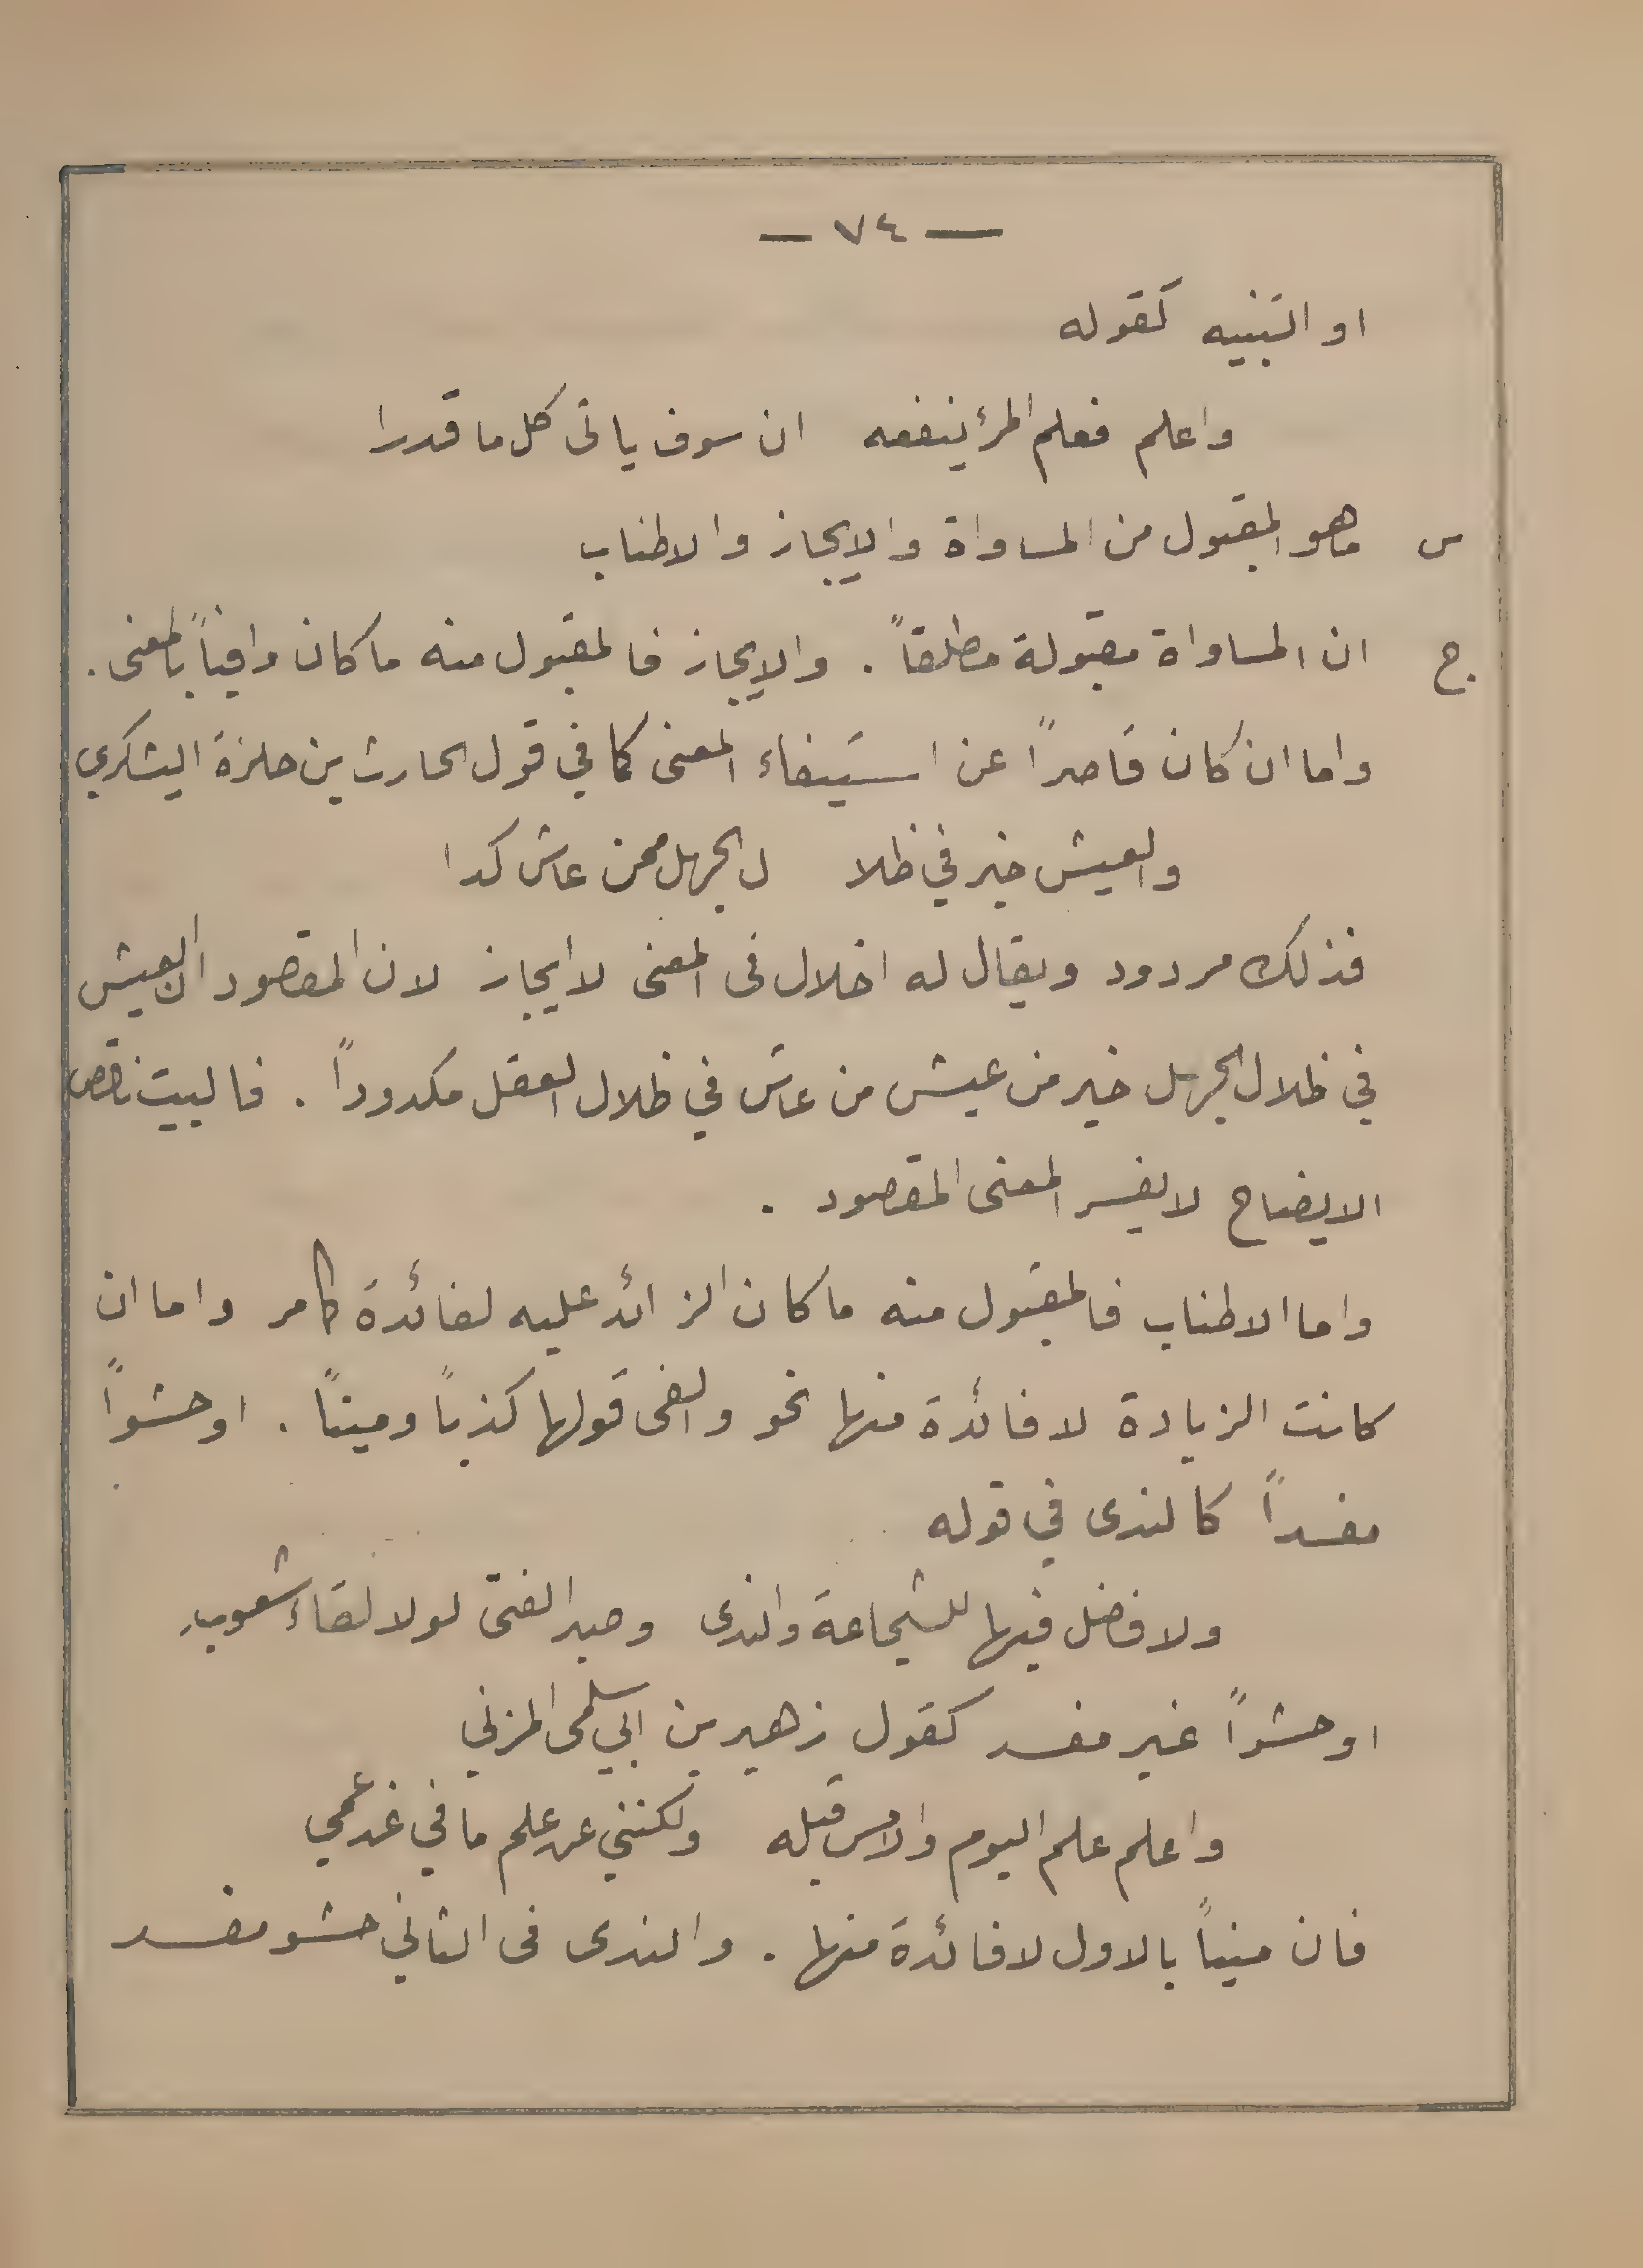 — ٧٤ —
او التنبيه كقوله
واعلم فعلم المرء ينفعه ان سوف ياتى كل ما قدرا
س ما هو المقبول من المساواة والايجاز والاطناب
ج ان المساواة مقبولة مطلقاً . والايجاز فالمقبول منه ما كان وافياً بالمعنى .
واما ان كان قاصراً عن استيفاء المعنى كما في قول الحارث بن حلزة اليشكري
والعيش خير في ظلا ل الجهل ممن عاش كدا
فذلك مردود ويقال له اخلال فى المعنى لا ايجاز لان المقصود ان العيش
في ظلال الجهل خير من عيش من عاش في ظلال العقل مكدوداً . فالبيت ناقص
الايضاح لا يفسر المعنى المقصود .
واما الاطناب فالمقبول منه ما كان الزائد عليه لفائدة كما مر واما ان
كانت الزيادة لا فائدة منها نحو والفى قولها كذباً وميناً . او حشواً
مفسداً كالندى في قوله
ولا فضل فيها للشجاعة والندى وصبر الفتى لولا لقاء شعوب
او حشواً غير مفسد كقول زهير بن ابي سلمى المزني
واعلم علم اليوم والامس قبله ولكنني عن علم ما في غد عمي
فان ميناً بالاول لا فائدة منها . والندى فى الثاني حشو مفسد